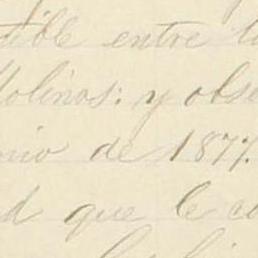 tible entre l
Molinos: y obse
nio de 1877.
d que le co